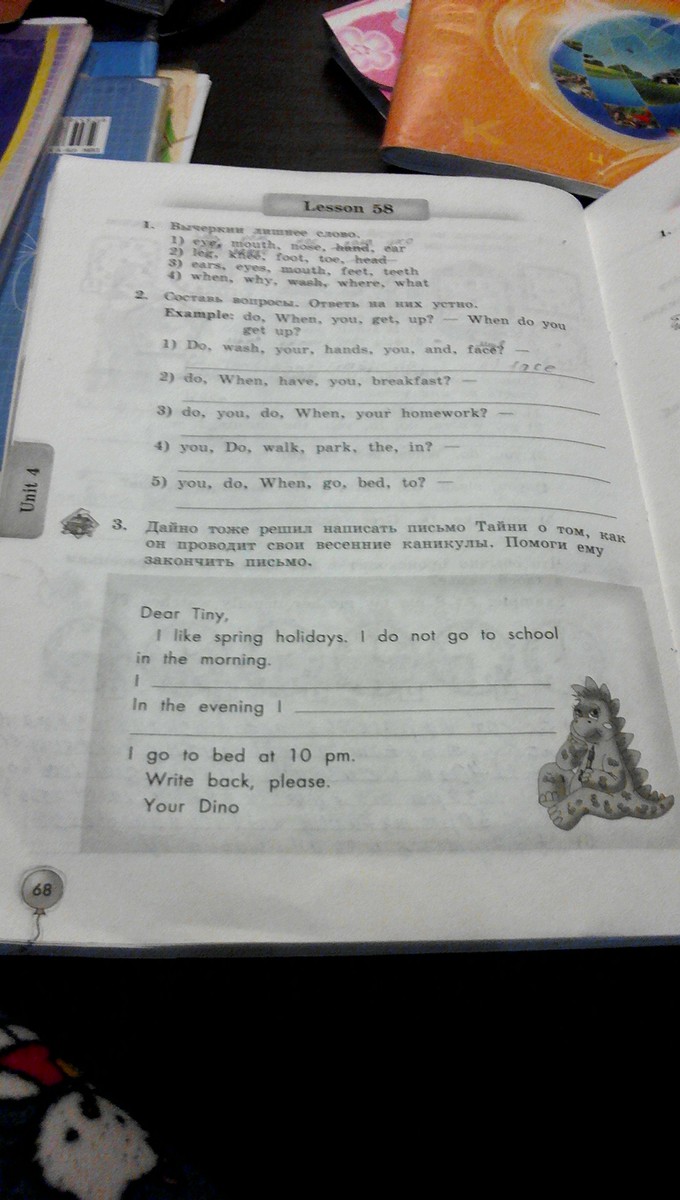 Lesson 58
1. Вычеркни лишнее слово.
1) eye, mouth, nose, hand, ear
2) leg, knee, foot, toe, head
3) ears, eyes, mouth, feet, teeth
4) when, why, wash, where, what
2. Составь вопросы. Ответь на них устно.
Example: do, When, you, get, up? — When do you
get up?
1) Do, wash, your, hands, you, and, face? —
face
2) do, When, have, you, breakfast? —
3) do, you, do, When, your homework? —
4) you, Do, walk, park, the, in? —
5) you, do, When, go, bed, to? —
Unit 4
3. Дайно тоже решил написать письмо Тайни о том, как
он проводит свои весенние каникулы. Помоги ему
закончить письмо.
Dear Tiny,
I like spring holidays. I do not go to school
in the morning.
I
In the evening I
I go to bed at 10 pm.
Write back, please.
Your Dino
68
К
Ч
1.